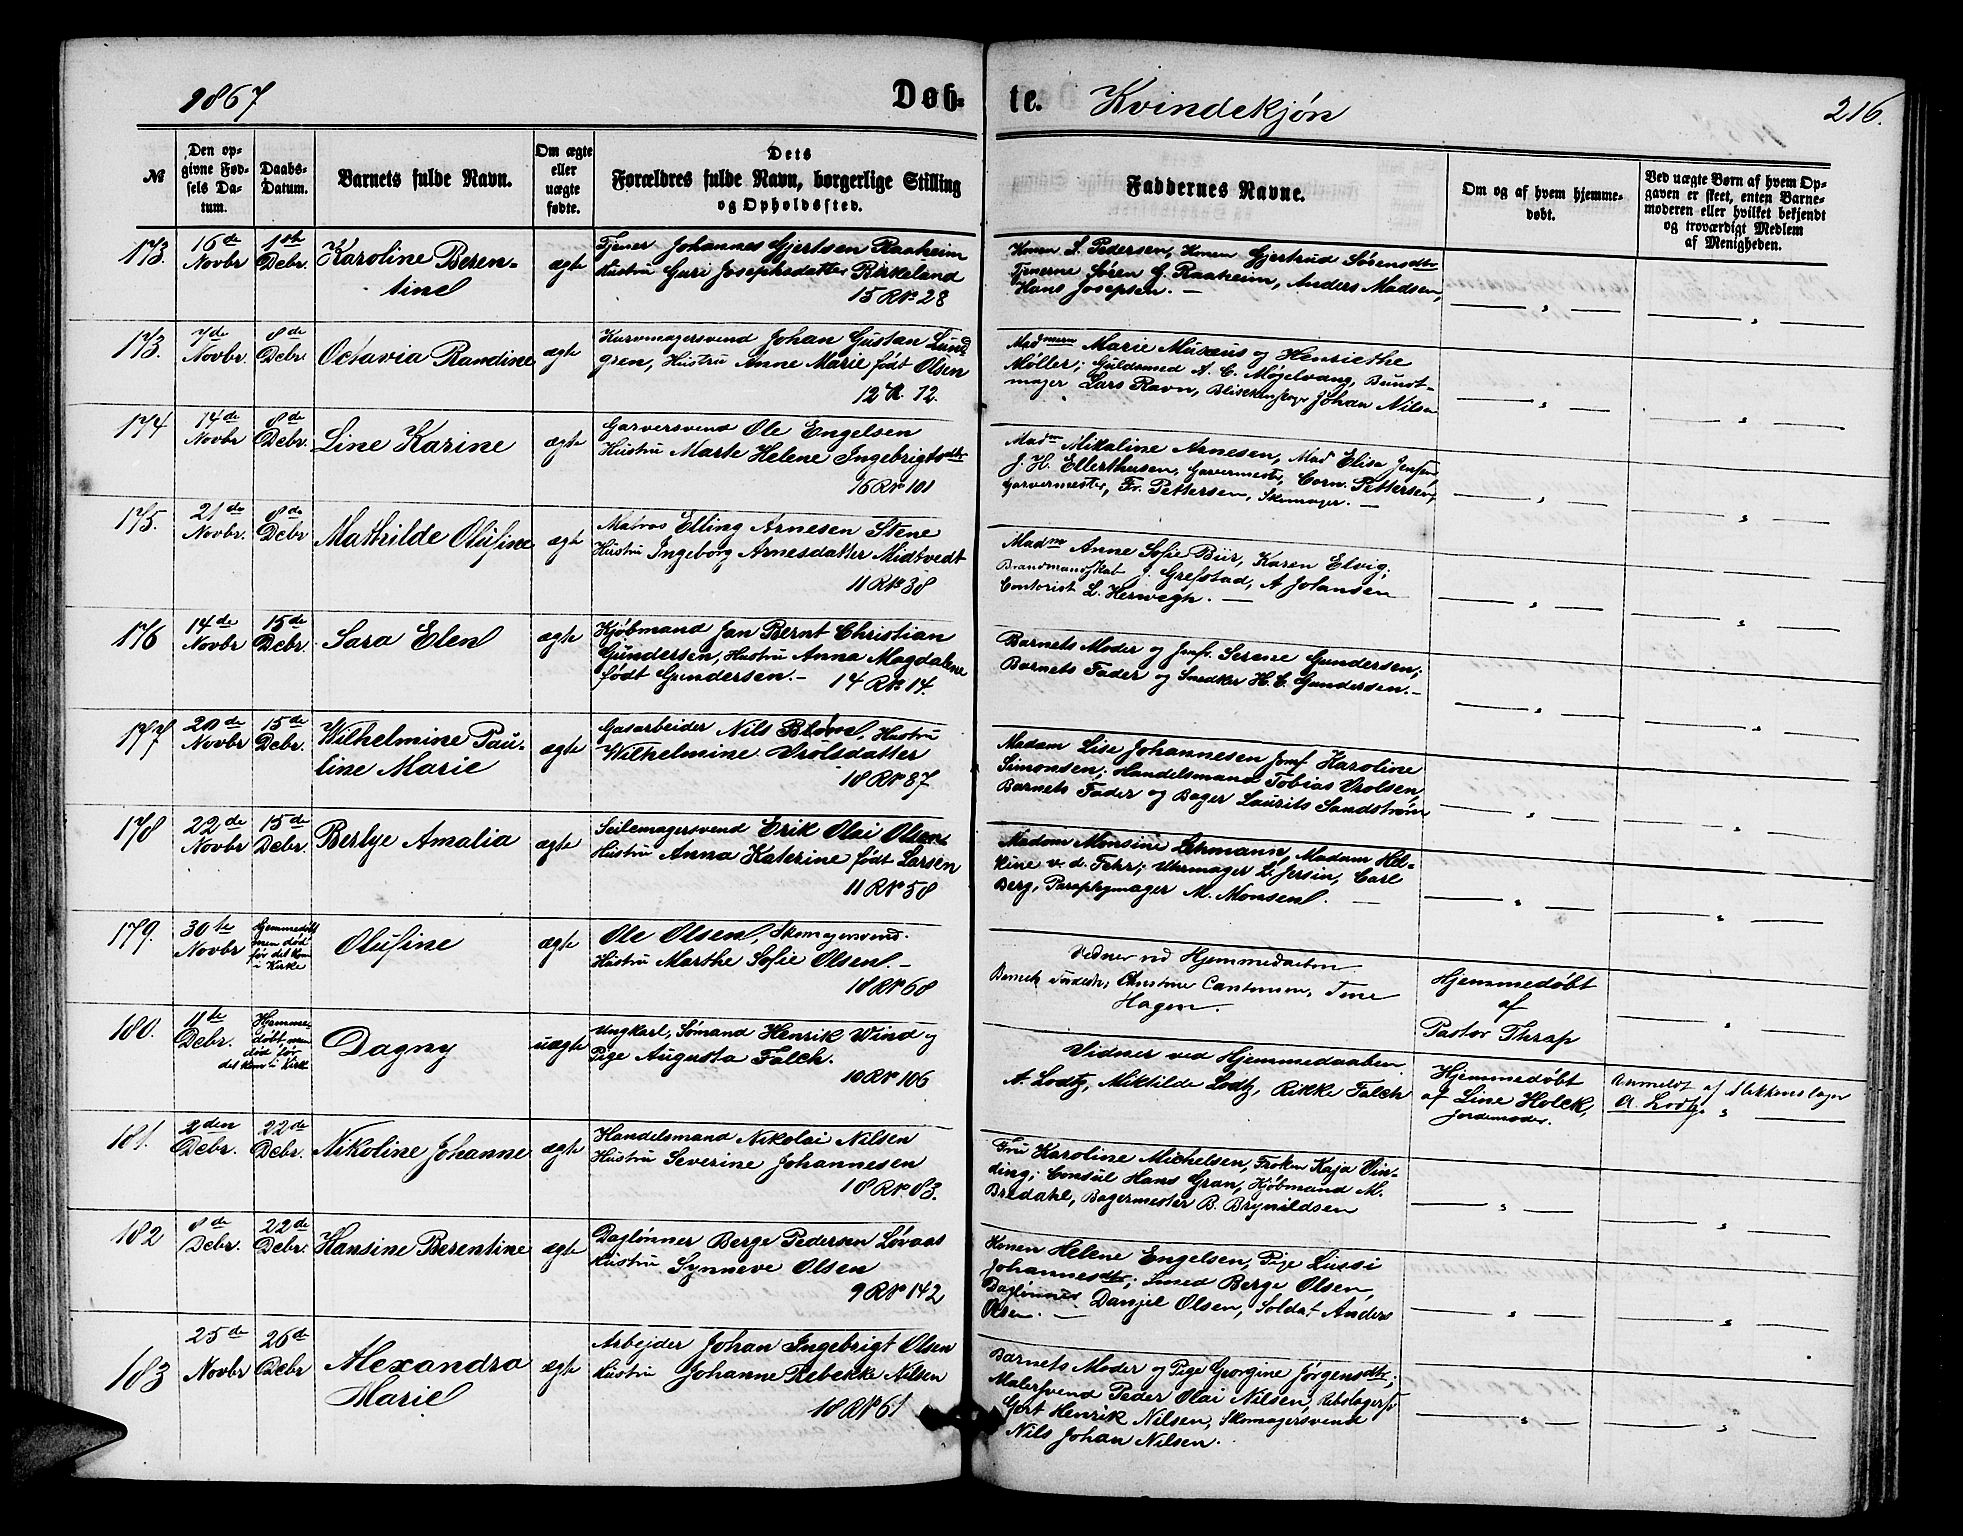 1867
Døb-
te.
Kvindekjøn
216.
№
Den opgivne Fødsels Datum.
Daabs-Datum.
Barnets fulde Navn.
Om ægte eller uægte fødte.
Dets Forældres fulde Navn, borgerlige Stilling og Opholdssted.
Faddernes Navne.
Om og af hvem hjemmedøbt.
Ved uægte Børn af hvem Opgaven er skeet, enten Barnemoderen eller hvilket bekjendt og troværdigt Medlem af Menigheden.
173.
16de Novbr
1ste Debr.
Karoline Beren-
tine
ægte
Tjener Johannes Gjertsen Raaheim
Hustru Guri Josephsdatter Birkeland
15 R № 28
Konen S. Pedersen, Konen Gjertrud Sørensdtr
Tjenerne Søren G. Raaheim, Anders Madsen,
Hans Josepsen. —
173.
7de Novbr.
8de Debr.
Octavia Randine
ægte
Kurvmagersvend Johan Gustan Lund
gren, Hustru Anne Marie født Olsen
12 R. 12.
Madmern Marie Musæus og Henriethe
Møller; Guldsmed A. C. Møgelvang, Bundt-
mager Lars Ravn, Johan Nilsen
174
14de Novbr
8de Debr.
Line Karine
ægte
Garversvend Ole Engelsen
Hustru Marte Helene Ingebrigtsdtr
16 R № 101
Madm Mikaline Arnesen, Mad Elise Jensen,
J. H. Ellerthusen, Garvermester, Corn. Pettersen,
Garvermester, Fr. Pettersen, Skomager. —
175.
21de Novbr.
8de Debr
Mathilde Olufine
ægte
Matros Elling Arnesen Stene
Hustru Ingeborg Arnesdatter Midtvedt
11 R № 38
Madm Anne Sofie Biir, Karen Elvig;
J. Grefstad, A Johansen
Contorist L. Herwegh. —
176
14de Novbr
15de Debr.
Sara Elen
ægte
Kjøbmand Jan Bernt Christian
Gundersen, Hustru Anna Magdalene
født Gundersen. — 14 R № 14.
Barnets Moder og Jmfr. Serene Gundersen;
Barnets Fader og Snedker H. C. Gundersen. —
177
20de Novbr
15de Debr.
Wilhelmine Pau-
line Marie
ægte
Gasarbeider Nils Bløm, Hustru
Wilhelmine Vrolsdatter
18 R № 87
Madam Lise Johannesen Jomf Karoline
Simonsen; Handelsmand Tobias Vrolsen,
Barnets Fader og Bager Laurits Sandstrøm
178
22de Novbr
15de Debr.
Berlye Amalia
ægte
Seilemagersvend Erik Olai Olsen
Hustru Anna Katerine født Larsen
11 R № 58
Madam Monsine Lehmann, Madam Hel-
kine v. d. Fehr; Uhrmager L. Jersin, Carl
Berg, Paraplymager M. Monsen. —
179.
30te Novbr
Hjemmedøbt
men død
før det kom
i Kirke
Olufine
ægte
Ole Olsen, Skomagersvend.
Hustru Marthe Sofie Olsen. —
18 R № 68
Vidner ved Hjemmedaaben
Christine Tine
Hagen.
Hjemmedøbt
af
Pastor Thrap
180.
11te Debr.
Hjemme-
døbt, men
død før
det kom i Kirke
Dagny
uægte
Ungkarl, Sømand Henrik Wind og
Pige Augusta Falch.
10 R № 106
Vidner ved Hjemmedaaben
A. Lodtz, Miktilde Lodtz, Rikke Falch
Hjemmedøbt
af Line Holck,
Jordemoder.
Anmeldt af Blikkenslager
A. Lodtz
181.
2den Debr.
22de Debr.
Nikoline Johanne
ægte
Handelsmand Nikolai Nilsen
Hustru Severine Johannesen
18 R № 83.
Fru Karoline Michelsen, Frøken Kaja Vin-
ding; Consul Hans Gran, Kjøbmand M.
Bredahl, Bagermester B. Brynildsen
182
8de Debr.
22de Debr.
Hansine Berentine
ægte
Daglønner Berge Pedersen Løvaas
Hustru Synneve Olsen
9 R № 142
Konen Helene Engelsen, Pige Lussi
Johannesdtr; Smed Berge Olsen,
Daglønner Danjel Olsen, Soldat Anders
Olsen. —
183
25de Novbr
26de Debr
Alexandra
Marie
ægte
Arbejder Johan Ingebrigt Olsen
Hustru Johanne Rebekke Nilsen
18 R № 61
Barnets Moder og Pige Georgine Jørgensdtr;
Malersvend Peder Olai Nilsen,
Gert Henrik Nilsen, Skomagersvende
Nils Johan Nilsen.